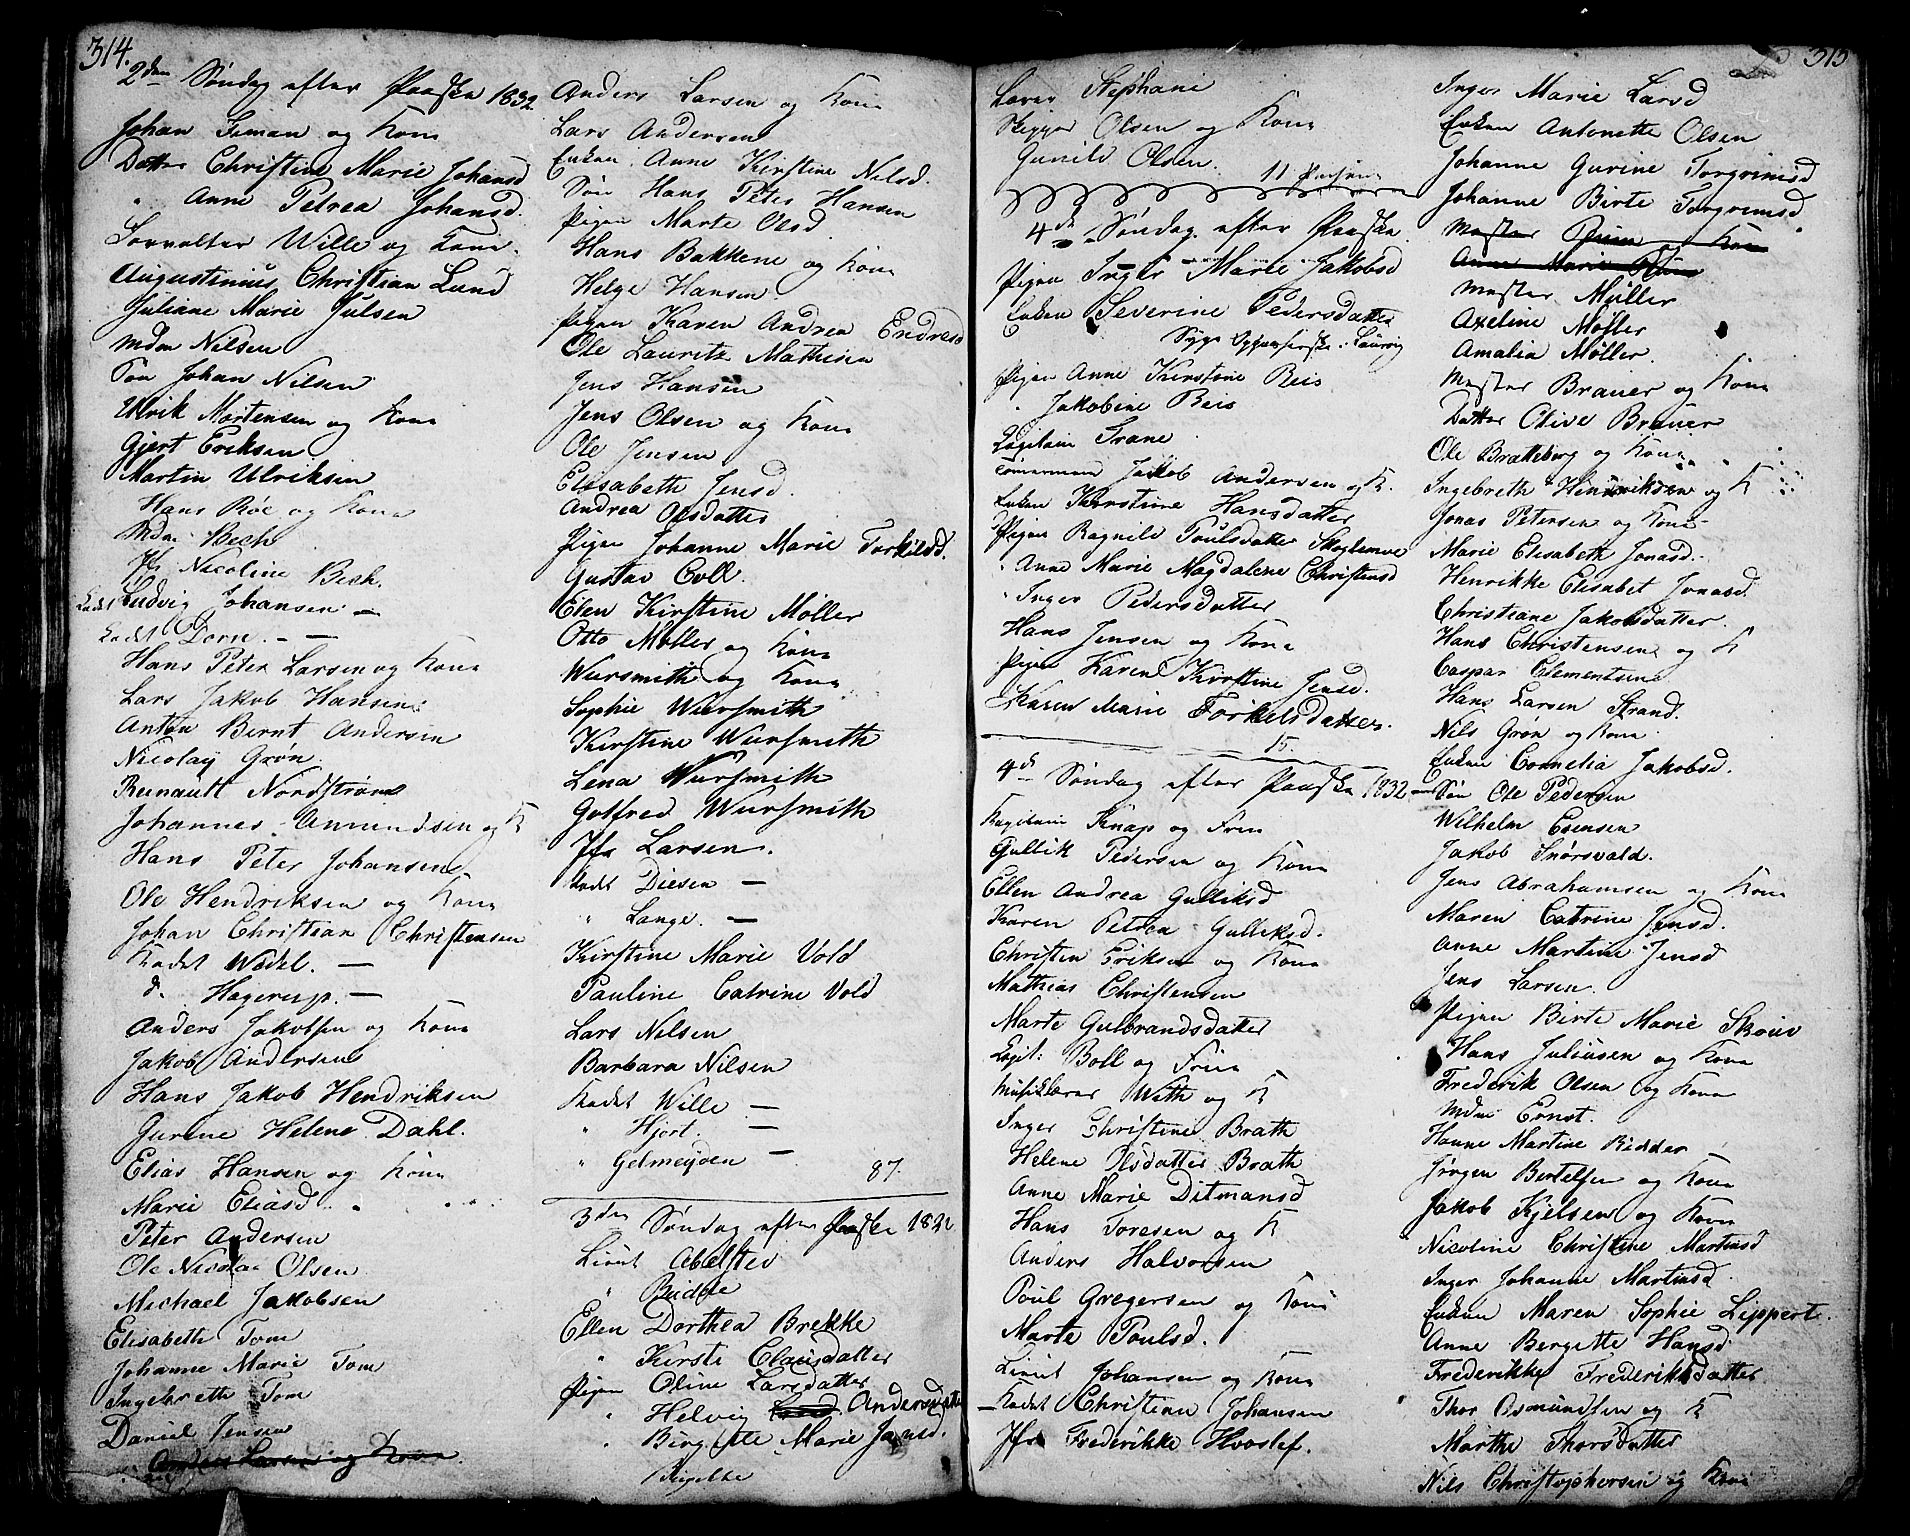 314.
2den Søndag efter Paaske 1832
Johan Siman og Kone
Datter Christine Marie Johansd
" Anne Petrea Johansd.
Forvalter Wille og Kone
Augustinius Christian Lund
Juliane Marie Julsen
Mdm Nilsen
Søn Johan Nilsen
Ulrik Mortensen og Kone
Gjert Eriksen
Martin Ulriksen
Hans Röe og Kone
Mdm Bech
Jfr Nicoline Bech.
Kadet Ludvig Johansen —
Kadet Dorn. —
Hans Peter Larsen og Kone
Lars Jakob Hansen
Anton Bernt Andersen
Nicolay Grøn
Runault Nordstrøm
Johannes Amundsen og K
Hans Peter Johansen
Ole Hendriksen og Kone
Johan Christian Christensen
Kadet Wedel. —
d. Hagerup. —
Anders Jakobsen og Kone
Jakob Andersen
Hans Jakob Hendriksen
Gurine Helene Dahl.
Elias Hansen og Kone
Marie Eliasd.
Peter Andersen
Ole Nicolai Olsen
Michael Jakobsen
Elisabeth Tom
Johanne Marie Tom
Ingebrette Tom
Daniel Jensen
Anders Larsen og Kone
Anders Larsen og Kone
Lars Andersen
Enken Anne Kirstine Nilsd.
Søn Hans Peter Hansen
Pigen Marte Olsd
Hans Bakkene og Kone
Helge Hansen
Pigen Karen Andrea Endresd
Ole Lauritz Mathisen
Jens Hansen
Jens Olsen og Kone
Ole Jensen
Elisabeth Jensd.
Andrea Olsdatter
Pigen Johanne Marie Torkildsd.
Gustav Coll.
Elen Kirstine Møller
Otto Møller og Kone
Wursmith og Kone
Sophie Wursmith
Kirstine Wursmith
Lena Wursmith
Gotfred Wursmith
Jfr Larsen.
Kadet Diesen —
" Lange. —
Kirstine Marie Vold
Pauline Catrine Vold
Lars Nilsen
Barbara Nilsen
Kadet Wille —
" Hjort. —
" Gelmeyden —
87.
3den Søndag efter Paaske 1832
Lieut Abelsted
" Budde
Ellen Dorthea Brekke
" Kirsti Clausdatter
Pigen Oline Larsdatter
" Helvig Andersdatter
" Birgitte Marie Jansd.
315
Lærer Stephani
Skipper Olsen og Kone
Gunild Olsen.
11 Personer
4de Søndag efter Paaske.
Pigen Inger Marie Jakobsd
Enken Severine Pedersdatter
Pigen Anne Kirstine Reis
" Jakobine Reis
Capitain Trane
Tømermand Jakob Andersen og K.
Enken Kirstine Hansdatter
Pigen Ragnild Poulsdatter
" Anne Marie Magdalene Christensd
" Inger Pedersdatter
Hans Jensen og Kone
Pigen Karen Kirstine Jensd.
Karen Marie Torkelsdatter.
15.
4de Søndag efter Paaske 1832
Kapitain Knap og Frue
Gullik Pedersen og Kone
Ellen Andrea Gulliksd
Karen Petrea Gulliksd.
Christen Eriksen og Kone
Mathias Christensen
Marte Gulbrandsdatter
Capit: Boll og Frue
Musiklærer With og K
Inger Christine Brath
Helene Olsdatter Brath
Anne Marie Ditmansd
Hans Toresen og K
Anders Halvorsen
Poul Gregersen og Kone
Marte Poulsd.
Lieut Johansen og Kone
Kadet Christian Johansen
Jfr Frederikke Hvoslef.
Inger Marie Larsd
Enken Antonette Olsen
Johanne Gurine Torgrimsd
Johanne Birte Torgrimsd
Mester og Kone
Anne Marie
Mester Møller
Axeline Møller
Amalia Møller.
Mester Brauer og Kone
Datter Olive Brauer
Ole Bratteborg og Kone
Ingebreth Henriksen og K
Jonas Petersen og Kone
Marie Elisabeth Jonasd.
Henrikke Elisabet Jonasd.
Christiane Jakobsdatter.
Hans Christensen og K
Caspar Clementsen
Hans Larsen Strand.
Nils Grøn og Kone
Enken Cornelia Jakobsd.
Søn Ole Pedersen
Wilhelm Esensen
Jakob Snørsvald.
Jens Abrahamsen og Kone
Maren Catrine Jensd.
Anne Martine Jensd
Jens Larsen.
Pigen Birte Marie Skouv
Hans Juliusen og Kone
Frederik Olsen og Kone
Mdm Ernst.
Hanne Martine Ridder
Jörgen Bertelsen og Kone
Jakob Kjelsen og Kone
Nicoline Christine Martinsd
Inger Johanne Martinsd.
Enken Maren Sophie Lippert.
Anne Bergette Hansd
Frederikke Frederiksdatter
Thor Osmundsen og K
Marthe Thorsdatter
Nils Christophersen og Kone